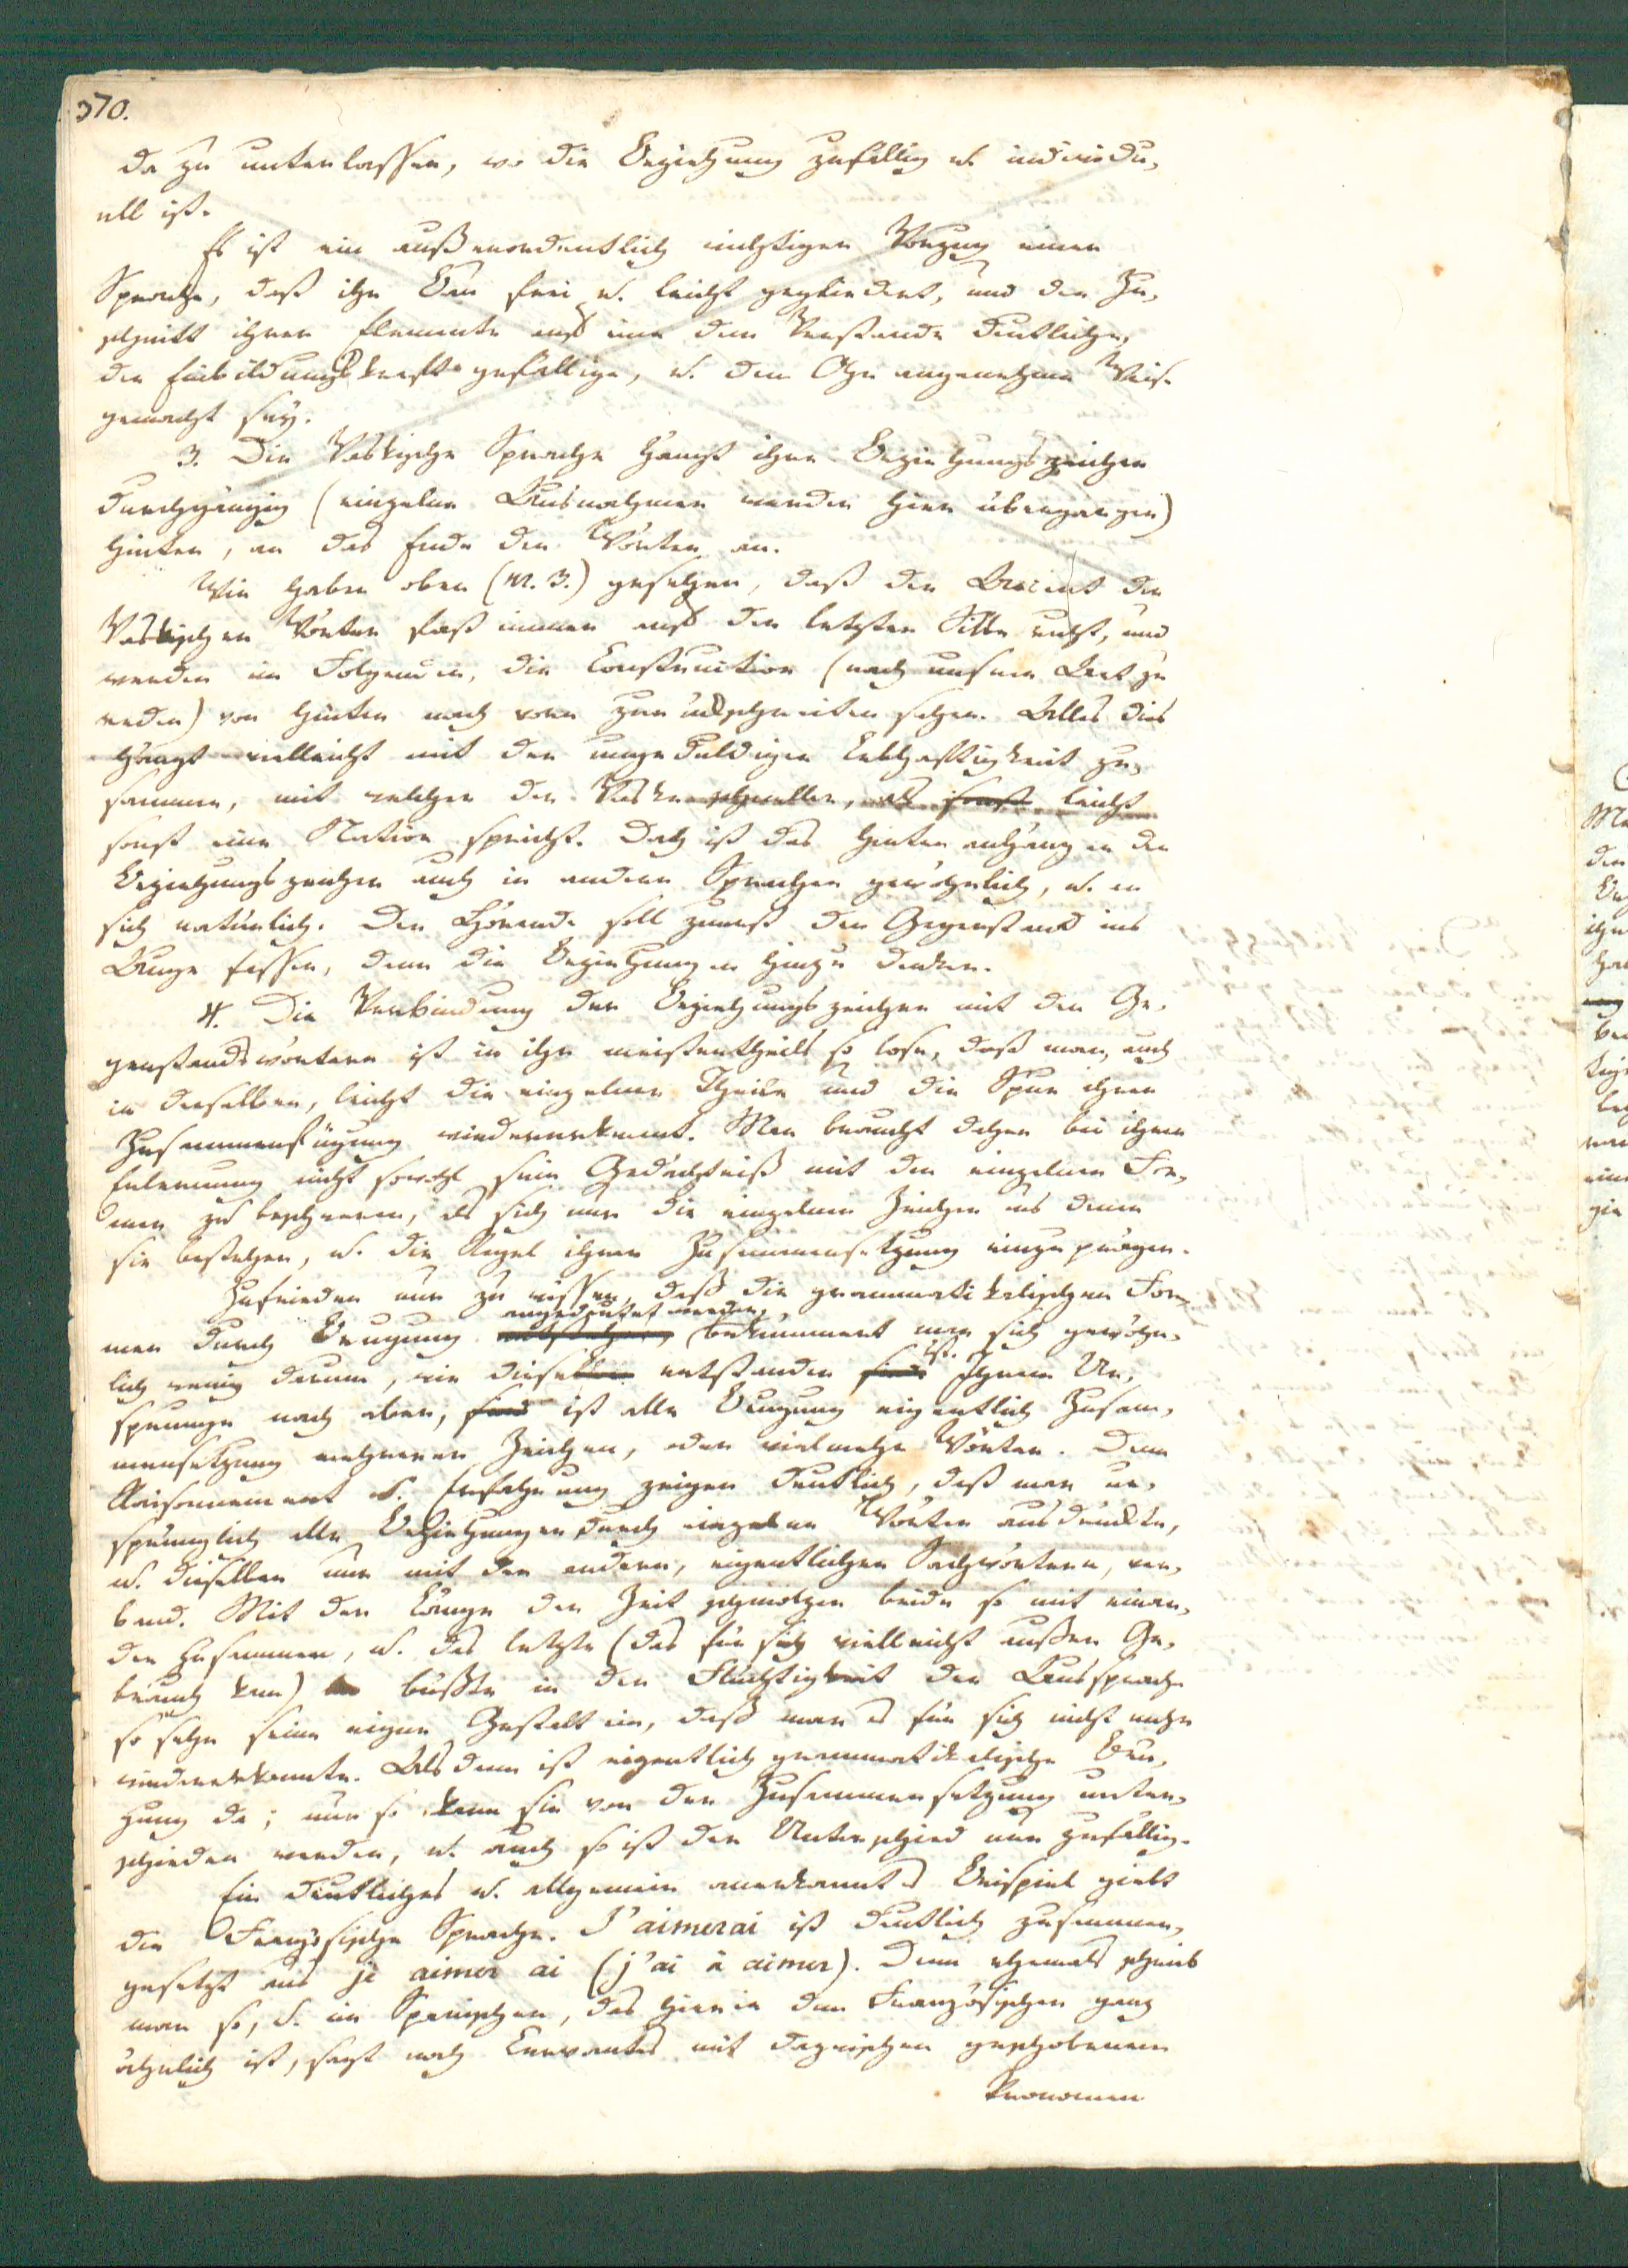 370.
da zu unterlassen, wo die Beziehung zufällig u. individu-
ell ist.
Es ist ein außerordentlich wichtiger Vorzug einer
Sprache, daß ihr Bau frei u. leicht gegliedert, und der Zu-
schnitt ihrer Elemente auf eine dem Verstande deutliche,
der Einbildungskraft gefällige, u. dem Ohr angenehme Weise
gemacht sey.
3. Die Vaskische Sprache hängt ihre Beziehungszeichen
durchgängig (einzelne Ausnahmen werden hier übergangen)
hinten, an das Ende der Wörter an.
Wir haben oben (nr. 3.) gesehen, daß der Accent der
Vaskischen Wörter fast immer auf der letzten Silbe ruht, und
werden im Folgenden, die Construction (nach unsrer Art zu
reden) von hinten nach vorn zurückschreiten sehen. Alles dies
hängt vielleicht mit der ungeduldigen Lebhaftigkeit zu-
sammen, mit welcher der Vaske schneller, als sonst leicht
sonst eine Nation spricht. Doch ist das Hinten anhängen der
Beziehungszeichen auch in andern Sprachen gewöhnlich, u. an
sich natürlich. Der Hörende soll zuerst den Gegenstand ins
Auge fassen, dann die Beziehungen hinzu denken.
4. Die Verbindung der Beziehungszeichen mit den Ge-
genstandswörtern ist in ihr meistentheils so lose, daß man, auch
in derselben, leicht die einzelnen Theile und die Spur ihrer
Zusammenfügung wiedererkennt. Man braucht daher bei ihrer
Erlernung nicht sowohl sein Gedächtniß mit den einzelnen For-
men zu beschweren, als sich nur die einzelnen Zeichen aus denen
sie bestehen, u. die Regel ihrer Zusammensetzung einzuprägen.
Zufrieden nur zu wissen, daß die grammatikalischen For-
angedeutet werden,
men durch Beugung entstehen, bekümmert man sich gewöhn-
ist.
lich wenig darum, wie dieselben entstanden sind Ihrem Ur-
sprunge nach aber, sind ist alle Beugung eigentlich Zusam-
mensetzung mehrerer Zeichen, oder vielmehr Wörter. Denn
Raisonnement u. Erfahrung zeigen deutlich, daß man ur-
sprünglich alle Beziehungen durch einzelne Wörter ausdruckte,
u. dieselben nur mit den andern, eigentlichen Sachwörtern, ver-
band. Mit der Länge der Zeit schmolzen beide so mit einan-
der zusammen, u. das letzte (das für sich vielleicht außer Ge-
brauch kam) büßte in der Flüchtigkeit der Aussprache
so sehr seine eigne Gestalt ein, daß man es für sich nicht mehr
wiedererkannte. Alsdann ist eigentlich grammatikalische Beu-
gung da; nur so kann sie von der Zusammensetzung unter-
schieden werden, u. auch so ist der Unterschied nur zufällig.
Ein deutliches u. allgemein anerkanntes Beispiel giebt
die Französische Sprache. J'aimerai ist deutlich zusammen-
gesetzt aus je aimer ai (j'ai à aimer). Denn ehemals schrieb
man so, u. im Spanischen, das hierin dem Französischen ganz
ähnlich ist, sagt noch Cervantes mit dazwischen geschobenem
Pronomen